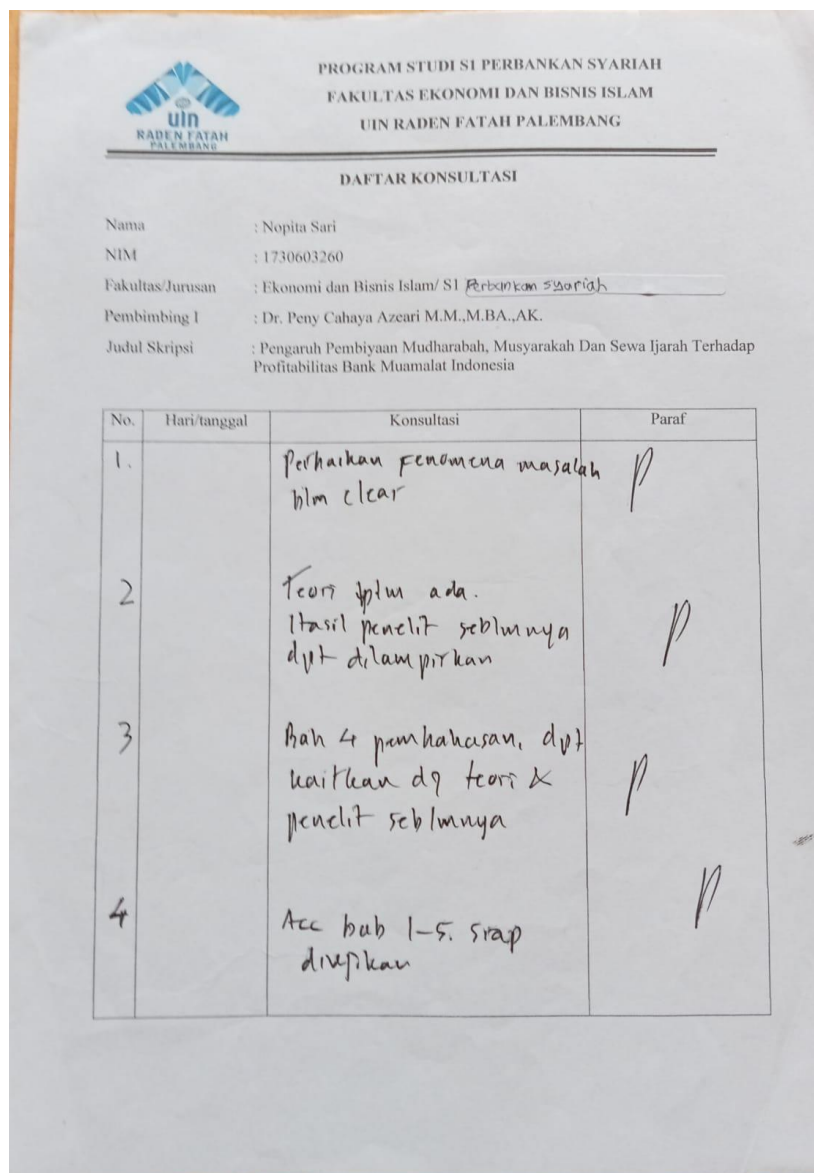 PROGRAM STUDI S1 PERBANKAN SYARIAH
FAKULTAS EKONOMI DAN BISNIS ISLAM
UIN RADEN FATAH PALEMBANG
uin
RADEN FATAH
PALEMBANG
DAFTAR KONSULTASI
Nama : Nopita Sari
NIM : 1730603260
Fakultas/Jurusan : Ekonomi dan Bisnis Islam/ S1 Perbankan syariah
Pembimbing 1 : Dr. Peny Cahaya Azeari M.M.,M.BA.,AK.
Judul Skripsi : Pengaruh Pembiyaan Mudharabah, Musyarakah Dan Sewa Ijarah Terhadap
Profitabilitas Bank Muamalat Indonesia
No. Hari/tanggal Konsultasi Paraf
1. Perbaikan fenomena masalah
blm clear
2 Teori blm ada.
Hasil penelit seblmnya
dpt dilampirkan
3 Bab 4 pembahasan, dpt
kaitkan dg teori &
penelit seblmnya
4 Acc bab 1-5. Siap
diujikan